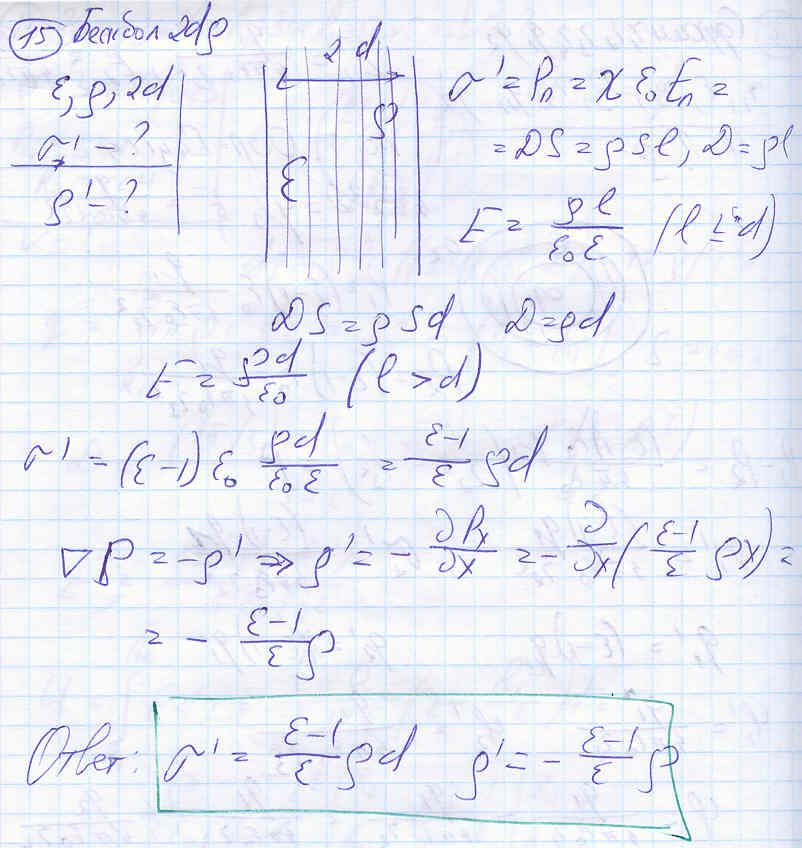 15 Бесбол 2dρ
ε, ρ, 2d
σ' - ?
ρ' - ?
2d
ρ
ε
σ' = Pₙ = χ ε₀ Eₙ =
= DS = ρSl, D = ρl
E = ρl / ε₀ε (l ≤ d)
DS = ρSd D = ρd
E = ρd / ε₀ (l > d)
σ' = (ε-1) ε₀ ρd / ε₀ε = ε-1 / ε ρd
∇P = -ρ' ⇒ ρ' = - ∂Pₓ / ∂x = - ∂ / ∂x (ε-1 / ε ρx) =
= - ε-1 / ε ρ
Ответ: σ' = ε-1 / ε ρd ρ' = - ε-1 / ε ρ